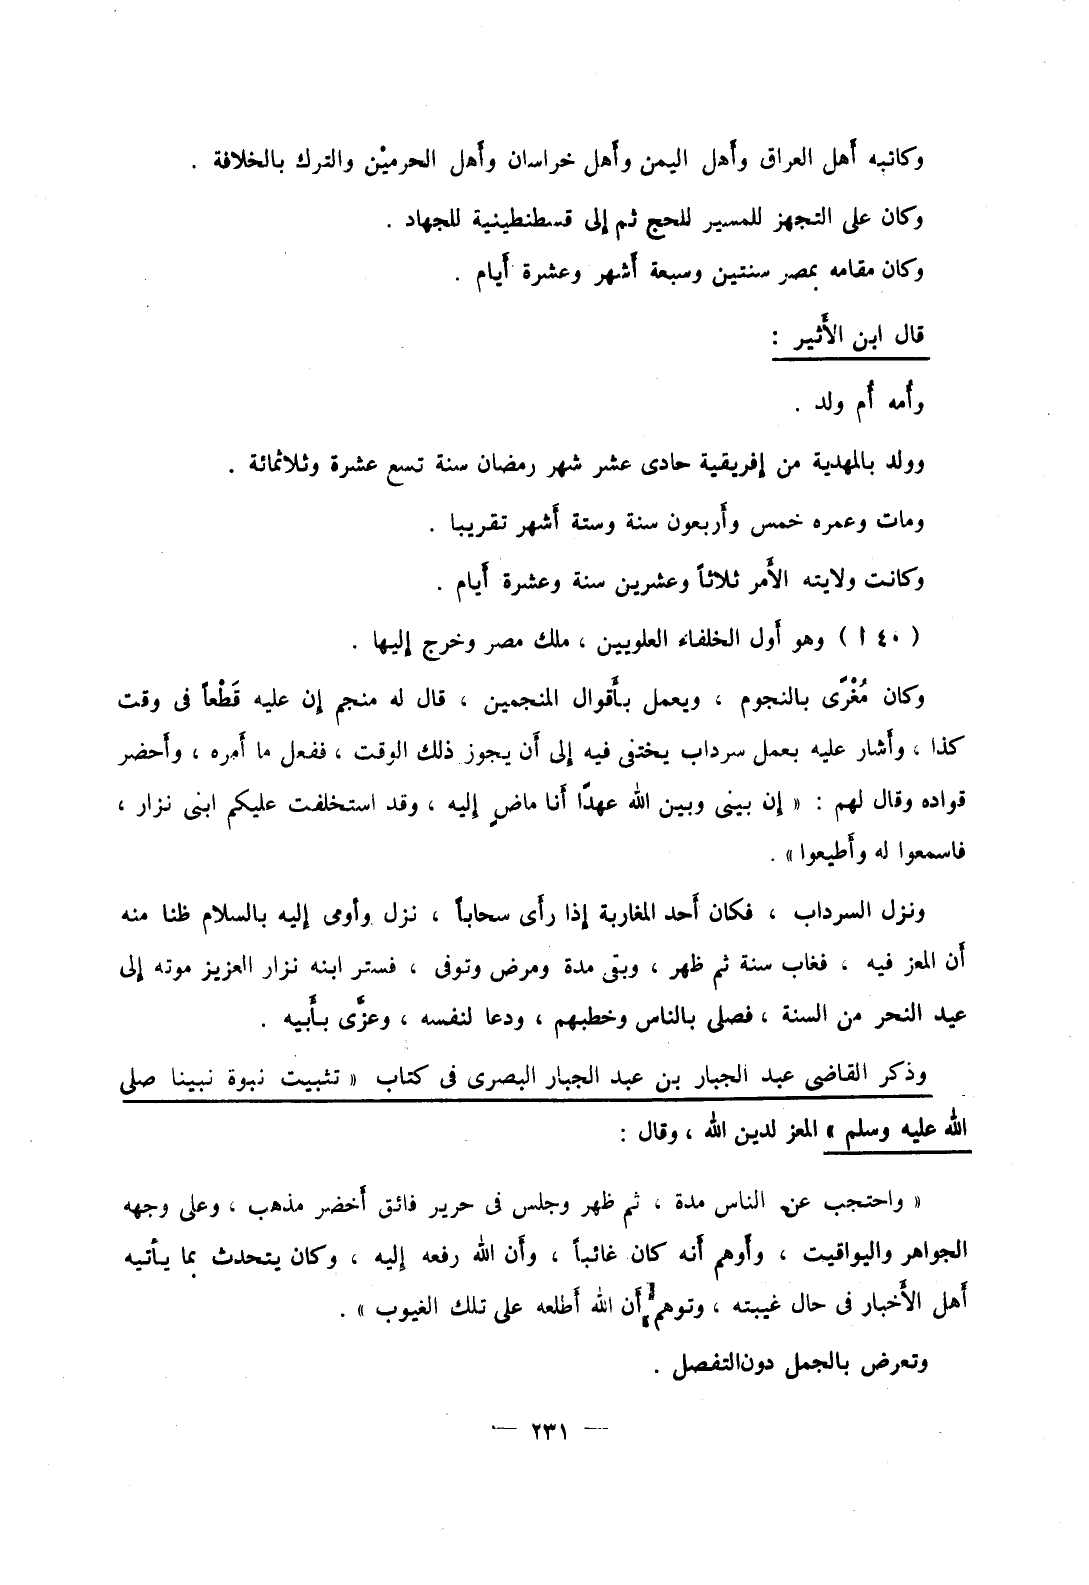 وكاتبه أهل العراق وأهل اليمن وأهل خراسان وأهل الحرميْن والترك بالخلافة .
وكان على التجهز للمسير للحج ثم إلى قسطنطينية للجهاد .
وكان مقامه بمصر سنتين وسبعة أشهر وعشرة أيام .
قال ابن الأثير :
وأمه أم ولد .
وولد بالمهدية من إفريقية حادى عشر شهر رمضان سنة تسع عشرة وثلاثمائة .
ومات وعمره خمس وأربعون سنة وستة أشهر تقريبا .
وكانت ولايته الأمر ثلاثاً وعشرين سنة وعشرة أيام .
( ٤٠ ا ) وهو أول الخلفاء العلويين ، ملك مصر وخرج إليها .
وكان مُغْرًى بالنجوم ، ويعمل بأقوال المنجمين ، قال له منجم إن عليه قَطْعاً فى وقت
كذا ، وأشار عليه بعمل سرداب يختفى فيه إلى أن يجوز ذلك الوقت ، ففعل ما أمره ، وأحضر
قواده وقال لهم : « إن بينى وبين الله عهدًا أنا ماضٍ إليه ، وقد استخلفت عليكم ابنى نزار ،
فاسمعوا له وأطيعوا » .
ونزل السرداب ، فكان أحد المغاربة إذا رأى سحاباً ، نزل وأومى إليه بالسلام ظنا منه
أن المعز فيه ، فغاب سنة ثم ظهر ، وبقى مدة ومرض وتوفى ، فستر ابنه نزار العزيز موته إلى
عيد النحر من السنة ، فصلى بالناس وخطبهم ، ودعا لنفسه ، وعزَّى بأبيه .
وذكر القاضى عبد الجبار بن عبد الجبار البصرى فى كتاب « تثبيت نبوة نبينا صلى
الله عليه وسلم » المعز لدين الله ، وقال :
« واحتجب عن الناس مدة ، ثم ظهر وجلس فى حرير فائق أخضر مذهب ، وعلى وجهه
الجواهر واليواقيت ، وأوهم أنه كان غائباً ، وأن الله رفعه إليه ، وكان يتحدث بما يأتيه
أهل الأخبار فى حال غيبته ، وتوهم أن الله أطلعه على تلك الغيوب » .
وتعرض بالجمل دون التفصل .
— ٢٣١ —